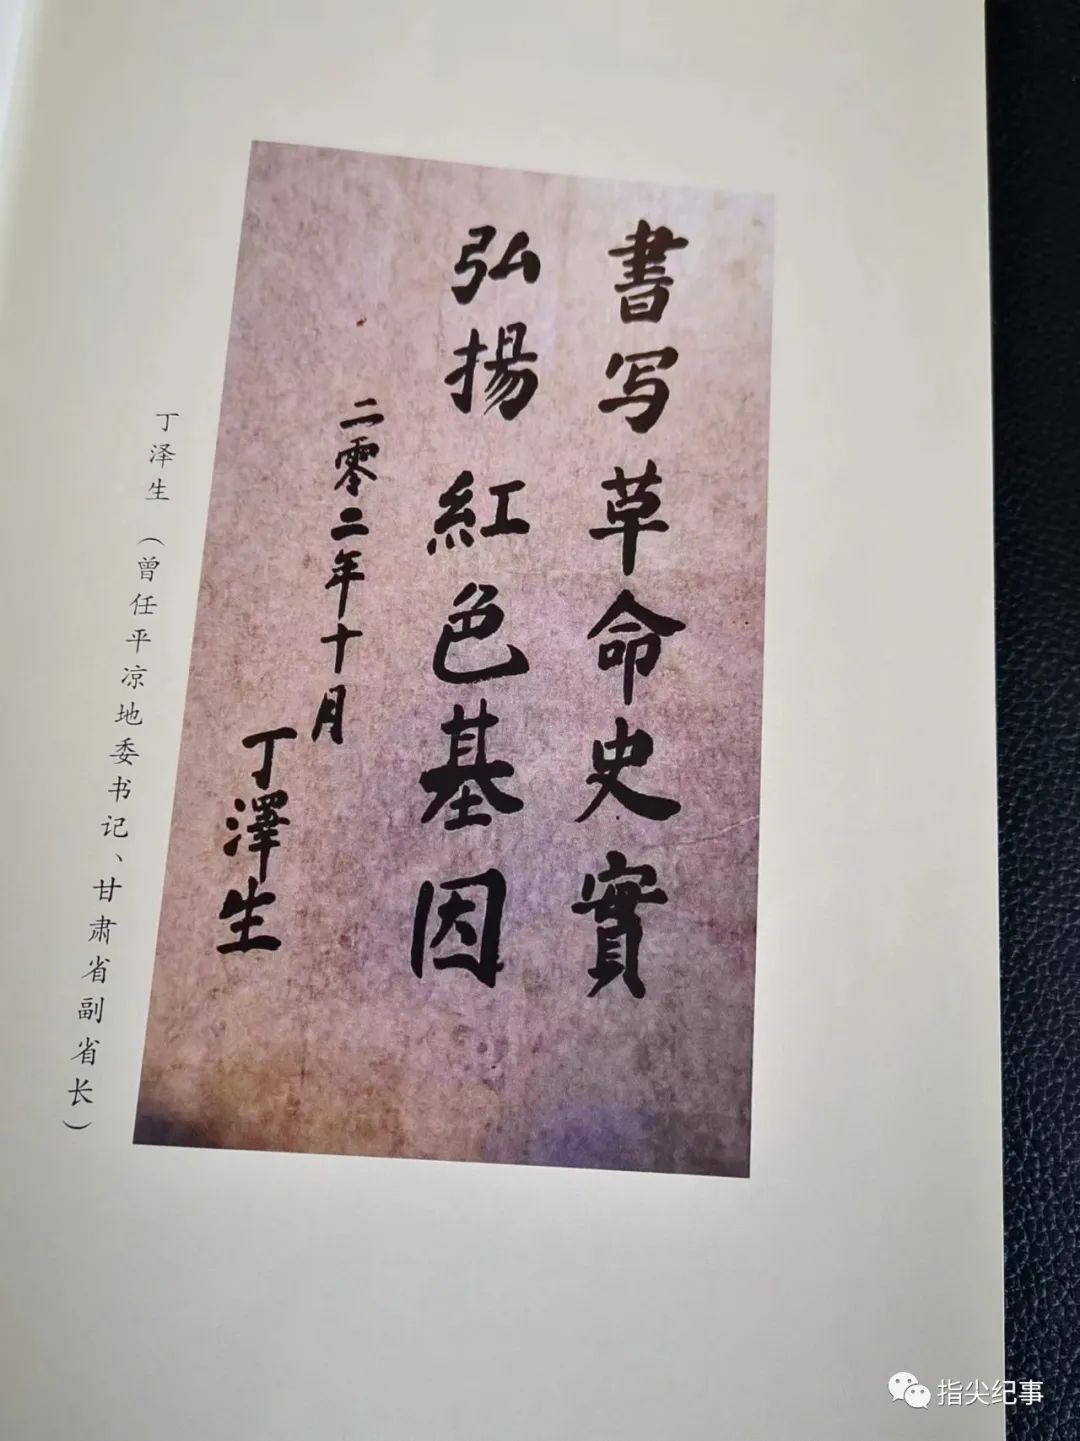 書写革命史實
弘揚紅色基因
二零二年十月
丁澤生
丁泽生（曾任平凉地委书记、甘肃省副省长）
指尖纪事